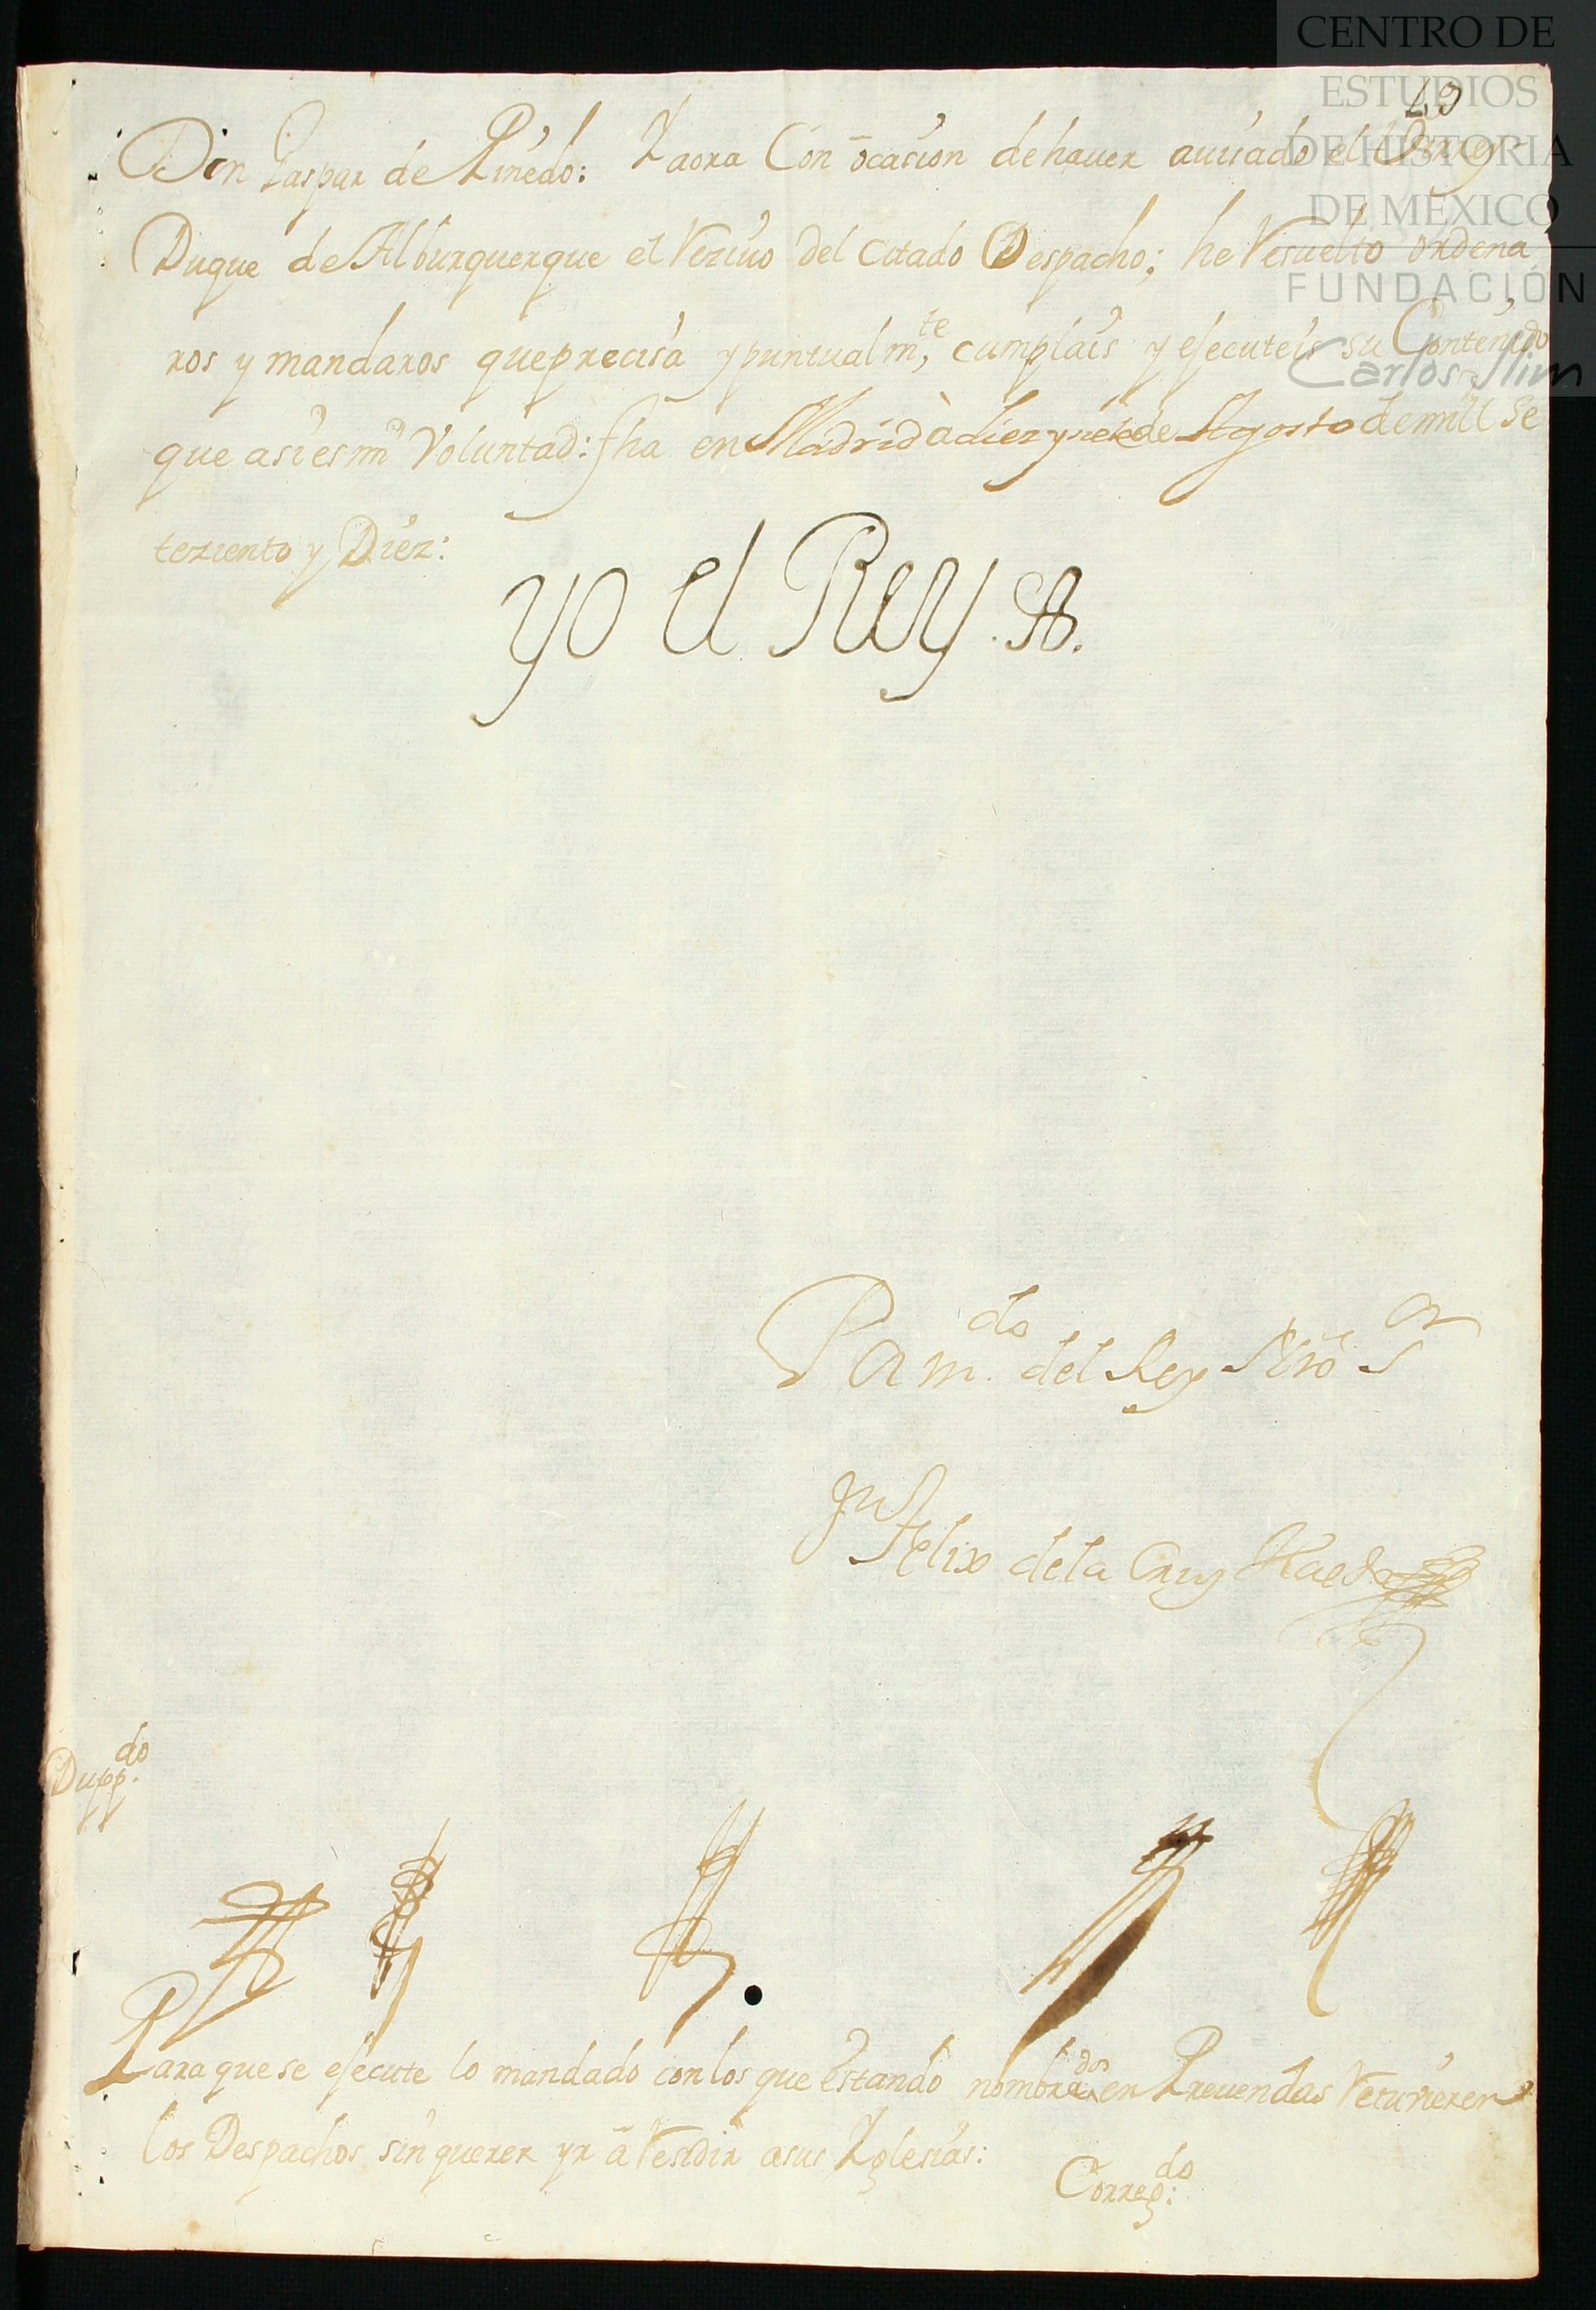 CENTRO DE
ESTUDIOS
DE HISTORIA
DE MÉXICO
FUNDACIÓN
Carlos Slim
Don Gaspar de Pinedo: Yaora Con ocasion dehauer auisado el Virrey
Duque de Alburquerque el Reziuo del citado Despacho; he Resuelto ordena
ros y mandaros queprecisa y puntualmte, cumplais y ejecuteis su Contenido
que asi es mi Voluntad: fha en Madrid à diez y siete de Agosto de mill Se
teziento y Diez:
yo el Rey
Por mdo. del Rey Nro Sor
Felix de la Cruz
Dupp.do
Para que se ejecute lo mandado con los que estando nombrados en Preuendas Retuvieren
los Despachos sin querer yr à Residir a sus Yglesias:
Correg:do